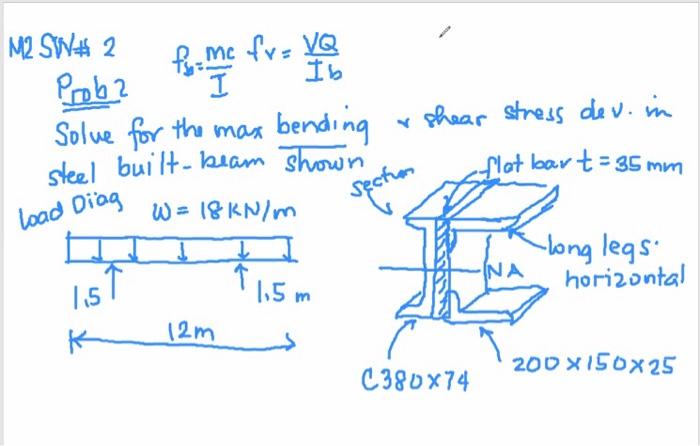 M2 SW# 2
fb = mc/I fv = VQ/Ib
Prob 2
Solve for the max bending & shear stress dev. in
steel built-beam shown
Load Diag
W = 18 KN/m
1.5
1.5 m
12m
section
flat bar t = 35 mm
long legs.
horizontal
NA
C380 x 74
200 x 150 x 25